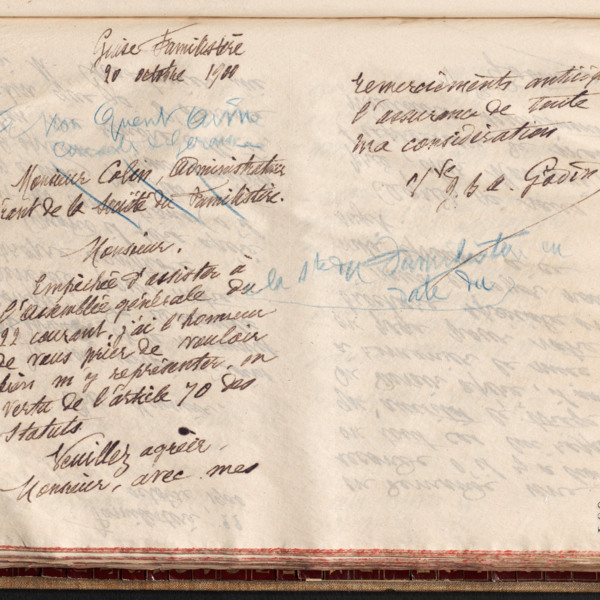 Guise Familistère
20 octobre 1900
Monsieur Colin, Administrateur
Gérant de la Société du Familistère.
Monsieur,
Empêchée d'assister à
l'assemblée générale du
22 courant, j'ai l'honneur
de vous prier de vouloir
bien m'y représenter, en
vertu de l'article 70 des
Statuts.
Veuillez agréer,
Monsieur, avec mes
remerciements anticipés
l'assurance de toute
ma considération
Vve J. b. a. Godin
la Sté du Familistère en
date du